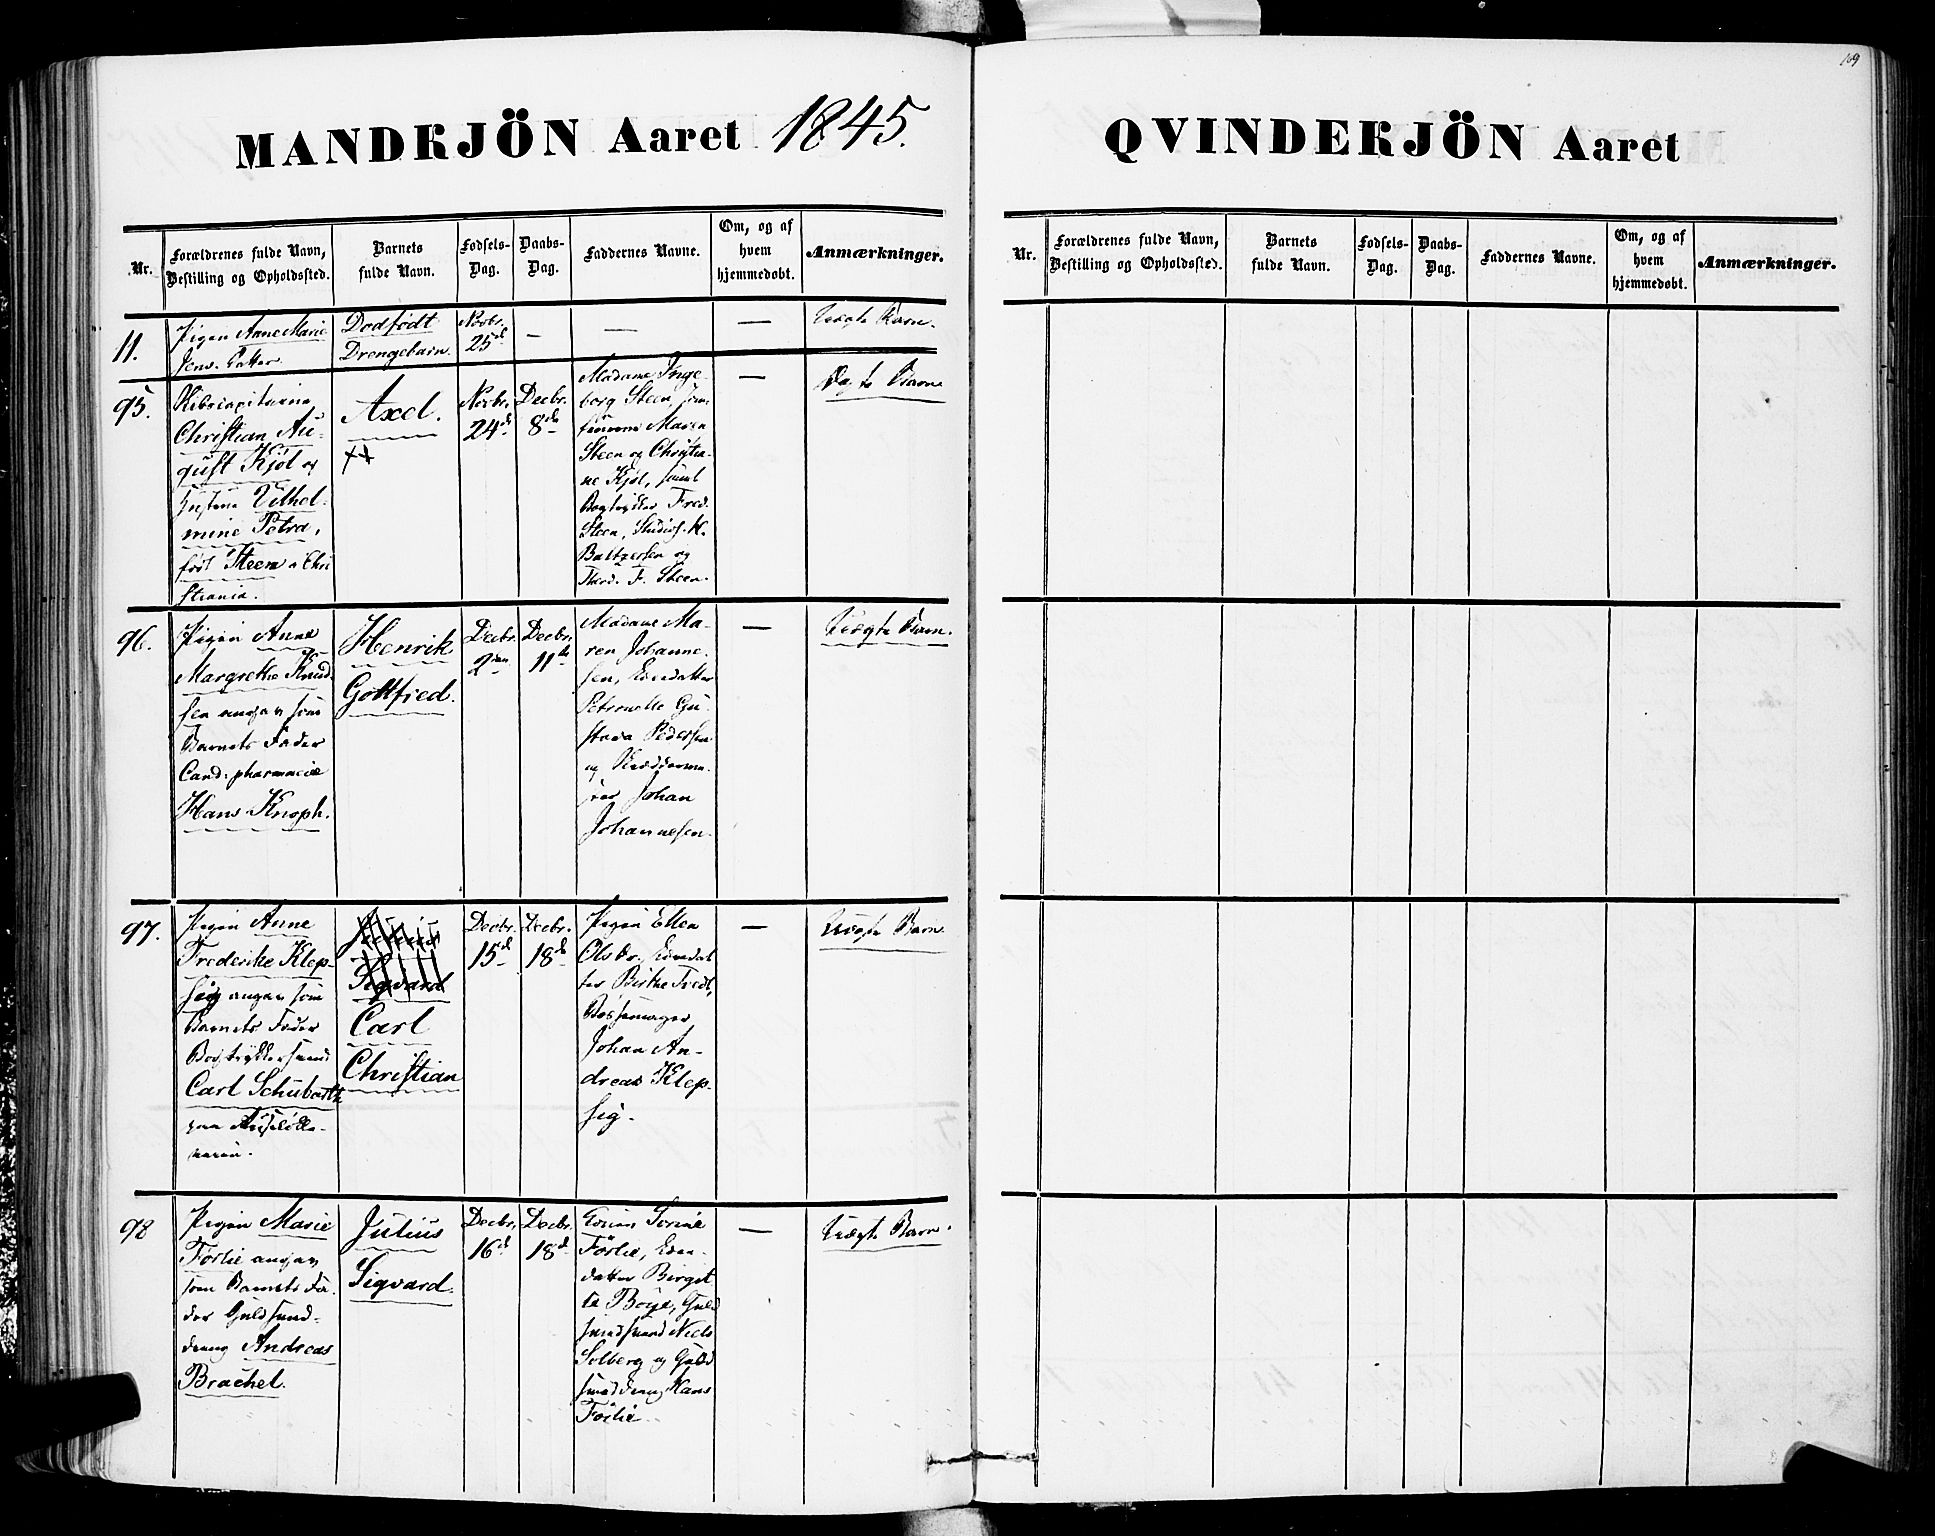 109
MANDKJÖN Aaret 1845.
Nr.
Forældrenes fulde Navn,
Bestilling og Opholdssted.
Barnets
fulde Navn.
Fødsels-
Dag.
Daabs-
Dag.
Faddernes Navne.
Om, og af
hvem
hjemmedøbt.
Anmærkninger.
11.
Pigen Anne Marie
Jens Datter
Dødfødt
Drengebarn.
Novbr.
25de
—
—
—
Uægte Barn.
95.
Skibscapitaine
Christian Au-
gust Kjøl og
Hustrue Vilhel-
mine Petra,
født Steen i Chri
stiania.
Axel.
Novbr.
24de
Decbr.
8de
Madame Inge-
borg Steen, Jom-
fruerne Maren
Steen og Christia-
ne Kjøl, samt
Bogtrykker Fred.
Steen, Studios. H.
Baltzersen og
F. Steen.
—
Ægte Barn
96.
Pigen Anne
Margrethe Knud-
sen angav som
Barnets Fader
Cand. pharmaciæ
Hans Knoph.
Henrik
Gottfried.
Decbr.
2den
Decbr.
11te
Madame Ma-
ren Johanne-
sen, Enedatter
Petronelle Gu-
stava Pedersen
og
Johan
Johannesen.
—
Uægte Barn.
97.
Pigen Anne
Frederike Klep-
sig angav som
Barnets Fader
Bogtrykkersvend
Carl Schubarth
paa
Julius
Sigvard
Carl
Christian
Decbr.
15de
Decbr.
18de
Pigen Ellen
Olsdr., Enedat
ter Birthe
Bøssemager
Johan An-
dreas Klep-
sig.
—
Uægte Barn.
98
Pigen Marie
Förlie angav
som Barnets Fa-
der Guldsmed-
dreng Andreas
Brachel.
Julius
Sigvard.
Decbr.
16de
Decbr.
18de
Konen Sorine
Förlie, Ene-
datter Birgit
te Boye, Guld
smedsvend Niels
Solberg og Guld
smeddreng Hans
Förlie.
—
Uægte Barn.
QVINDEKJÖN Aaret
Nr.
Forældrenes fulde Navn,
Bestilling og Opholdssted.
Barnets
fulde Navn.
Fødsels-
Dag.
Daabs-
Dag.
Faddernes Navne.
Om, og af
hvem
hjemmedøbt.
Anmærkninger.